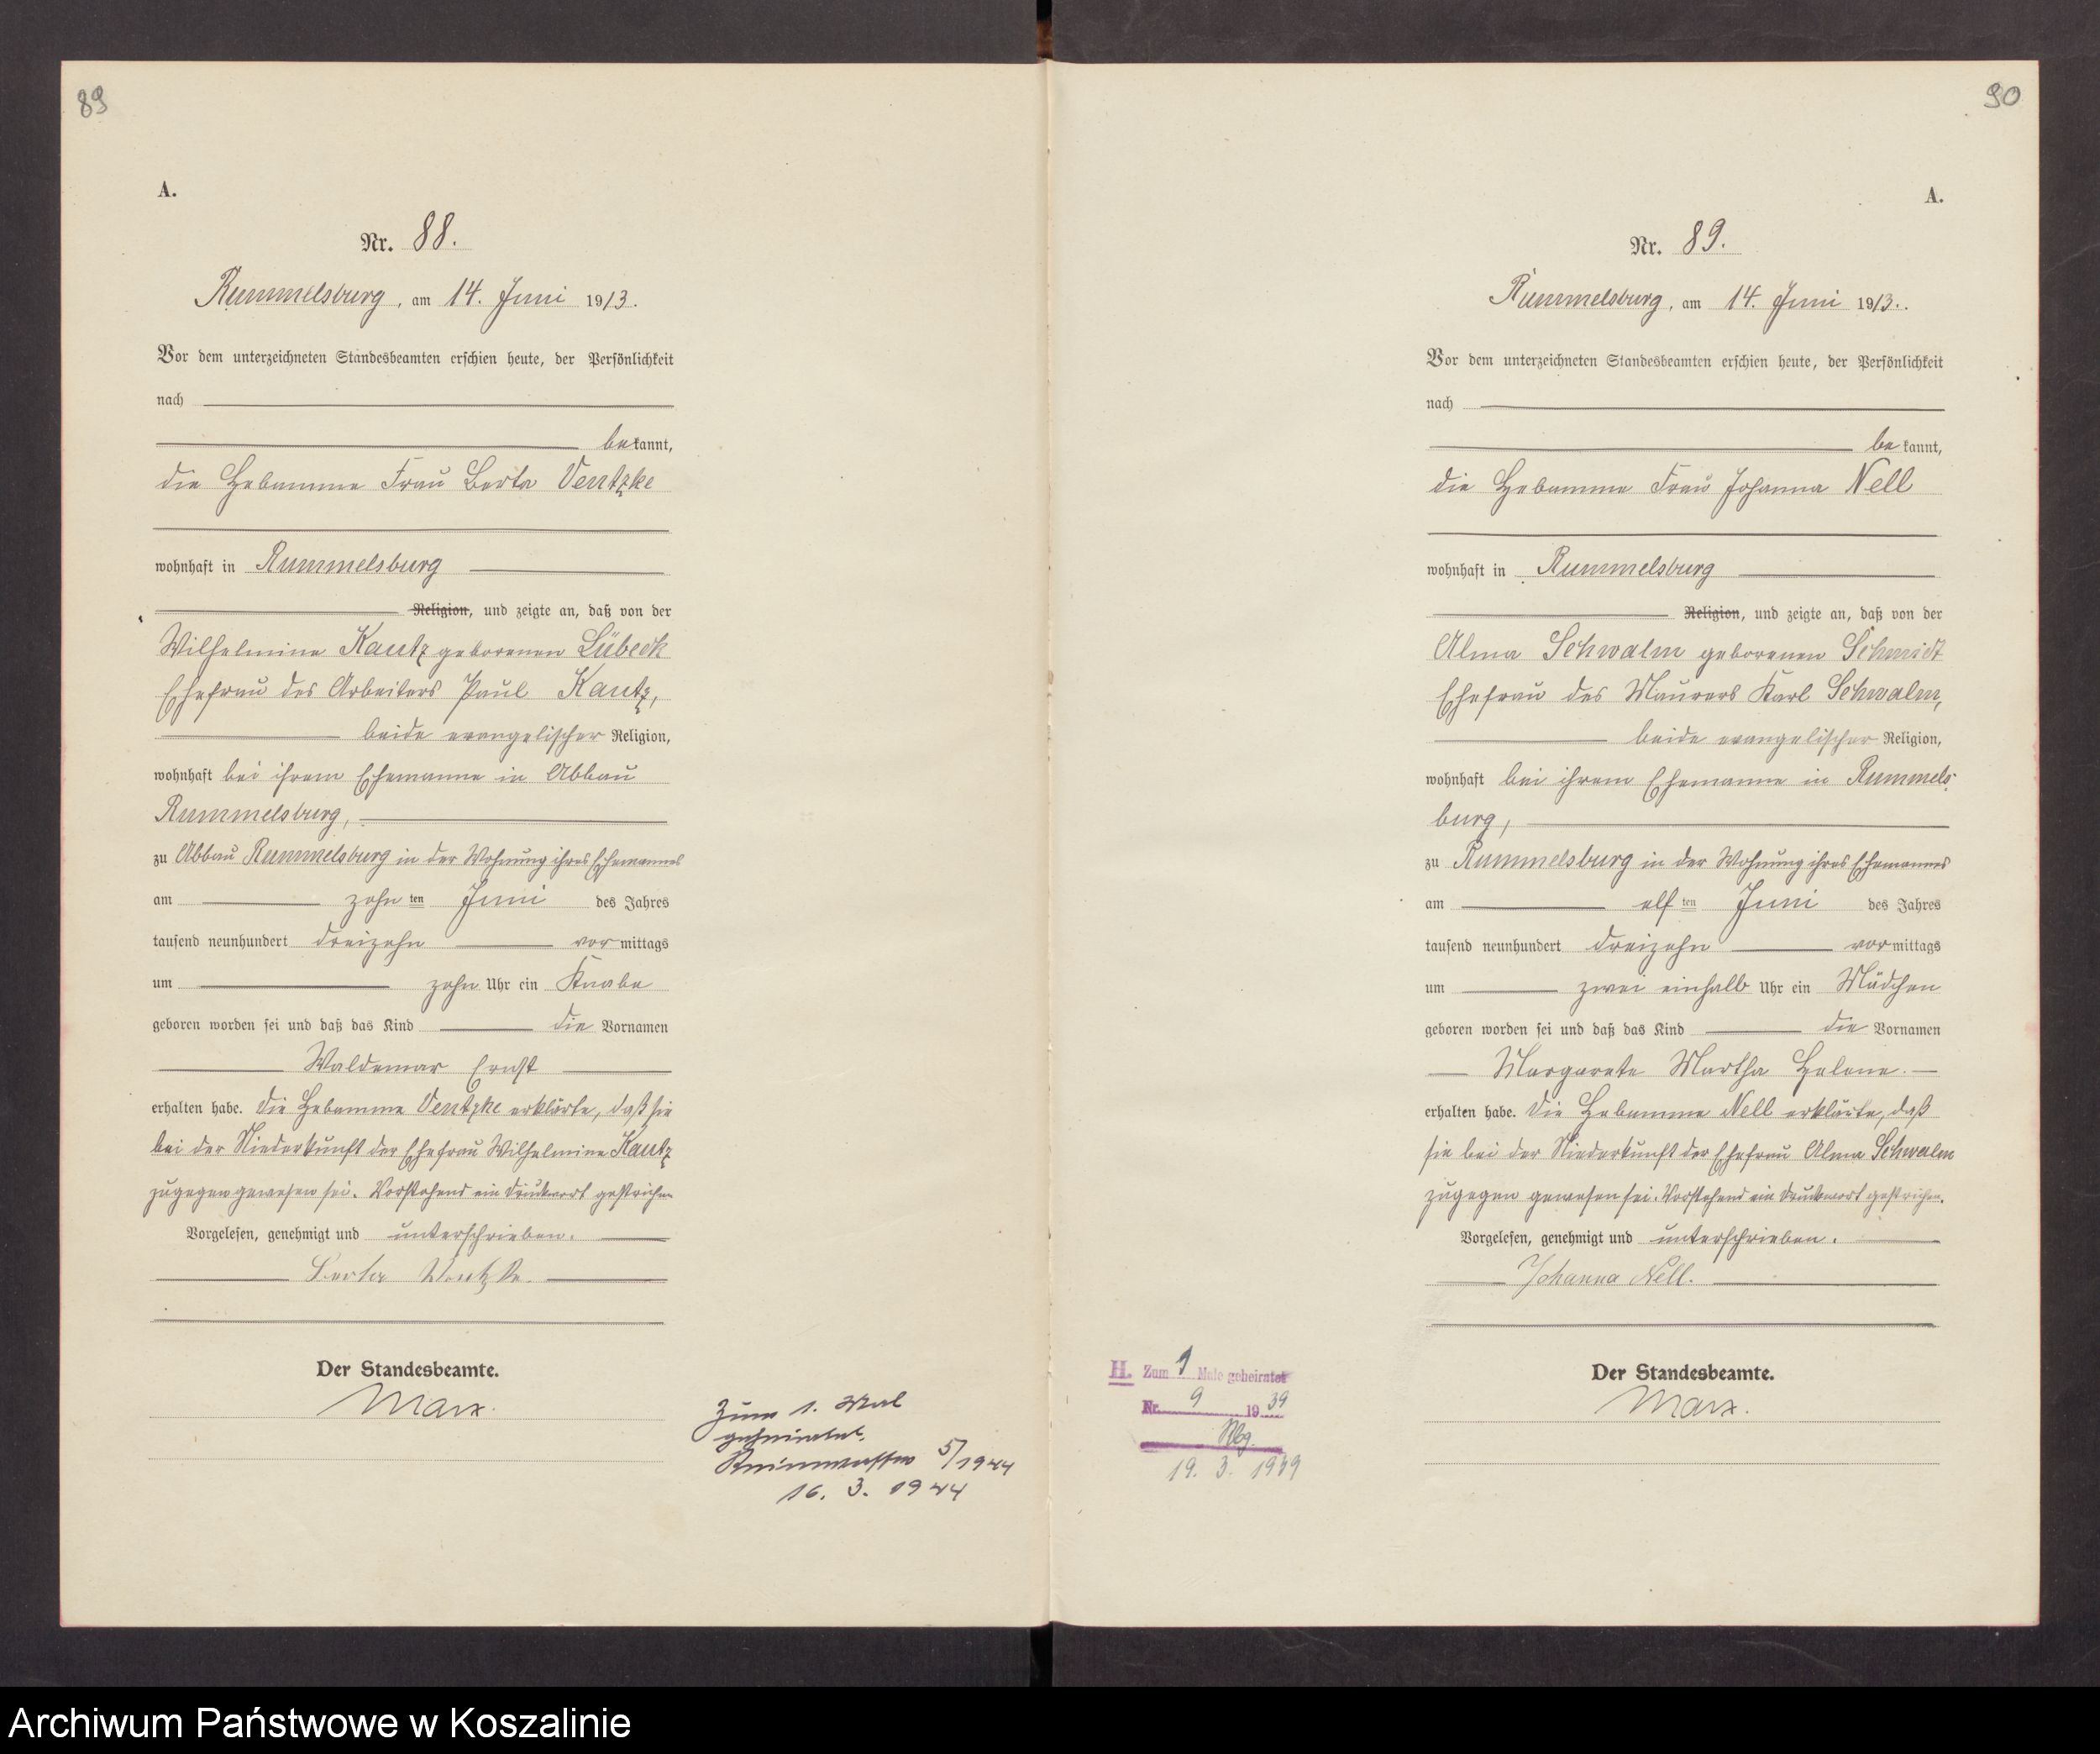 89
A.
Nr. 88.
Rummelsburg, am 14. Juni 1913.
Vor dem unterzeichneten Standesbeamten erschien heute, der Persönlichkeit
nach
bekannt,
die Hebamme Frau Berta Ventzke
wohnhaft in Rummelsburg
Religion, und zeigte an, daß von der
Wilhelmine Kautz geborenen Lübeck
Ehefrau des Arbeiters Paul Kautz,
beide evangelischer Religion,
wohnhaft bei ihrem Ehemanne in Abbau
Rummelsburg,
zu Abbau Rummelsburg in der Wohnung ihres Ehemannes
am zehnten Juni des Jahres
tausend neunhundert dreizehn vormittags
um zehn Uhr ein Knabe
geboren worden sei und daß das Kind die Vornamen
Waldemar Ernst
erhalten habe. Die Hebamme Ventzke erklärte, daß sie
bei der Niederkunft der Ehefrau Wilhelmine Kautz
zugegen gewesen sei. Vorstehend ein Druckwort gestrichen
Vorgelesen, genehmigt und unterschrieben.
Berta Ventzke.
Der Standesbeamte.
Marx.
Zum 1. Mal
geheiratet.
5/1944
16. 3. 1944
90
A.
Nr. 89.
Rummelsburg, am 14. Juni 1913.
Vor dem unterzeichneten Standesbeamten erschien heute, der Persönlichkeit
nach
bekannt,
die Hebamme Frau Johanna Nell
wohnhaft in Rummelsburg
Religion, und zeigte an, daß von der
Alma Schwalm geborenen Schmidt
Ehefrau des Maurers Karl Schwalm,
beide evangelischer Religion,
wohnhaft bei ihrem Ehemanne in Rummels-
burg,
zu Rummelsburg in der Wohnung ihres Ehemannes
am elften Juni des Jahres
tausend neunhundert dreizehn vormittags
um zwei einhalb Uhr ein Mädchen
geboren worden sei und daß das Kind die Vornamen
Margarete Martha Helene.
erhalten habe. Die Hebamme Nell erklärte, daß
sie bei der Niederkunft der Ehefrau Alma Schwalm
zugegen gewesen sei. Vorstehend ein Druckwort gestrichen.
Vorgelesen, genehmigt und unterschrieben.
Johanna Nell.
Der Standesbeamte.
Marx.
H. Zum 1 Male geheiratet
Nr. 9 1939
Rbg.
19. 3. 1939
Archiwum Państwowe w Koszalinie